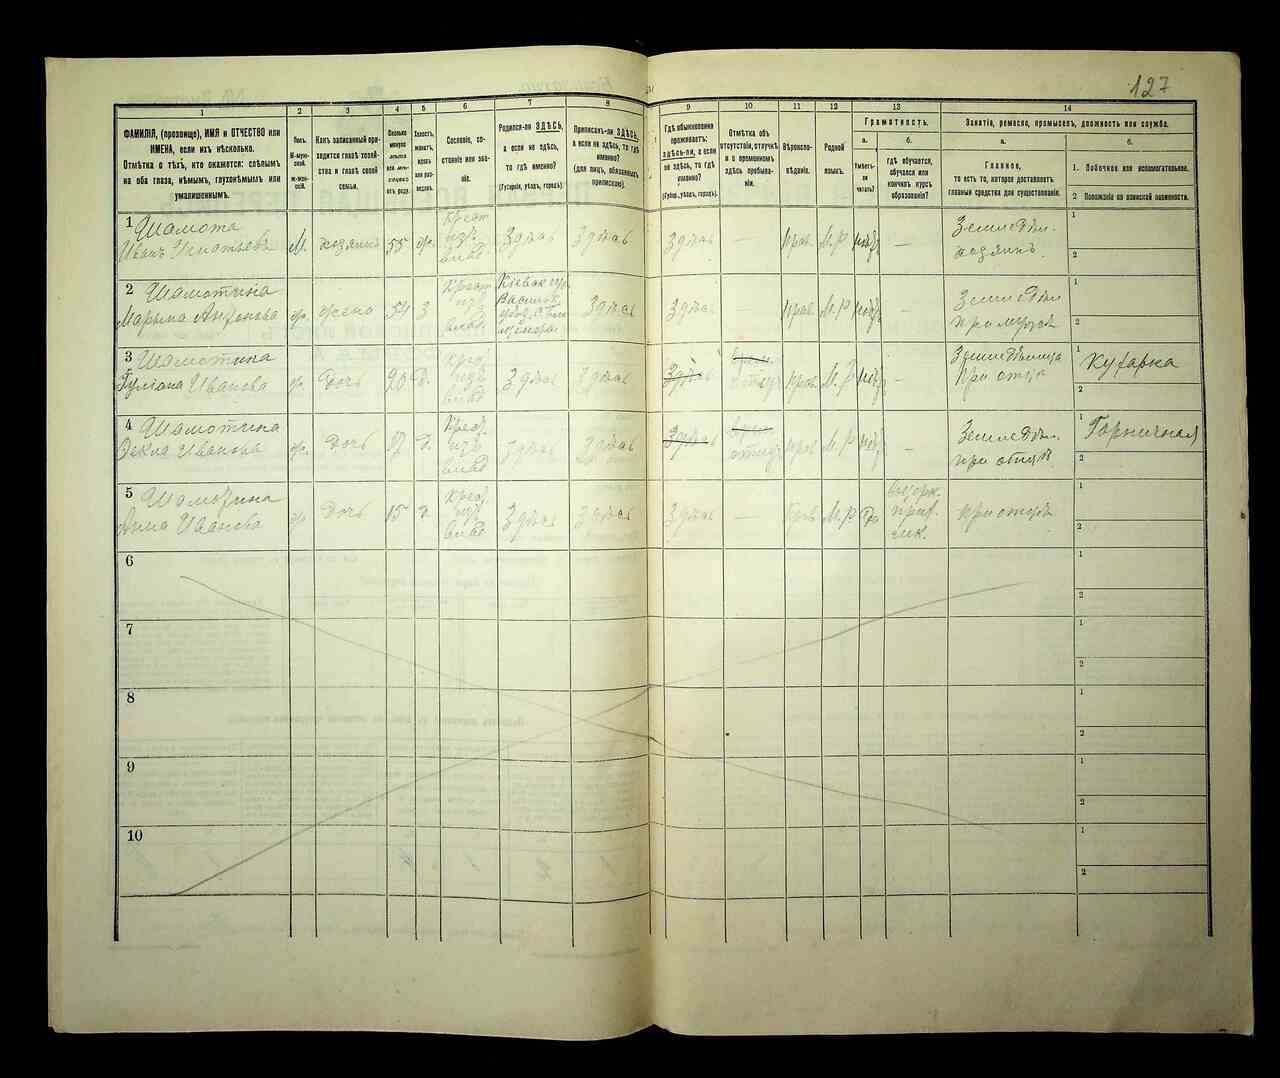 127
1
2
3
4
5
6
7
8
9
10
11
12
13
14
ФАМИЛІЯ, (прозвище), ИМЯ и ОТЧЕСТВО или
ИМЕНА, если ихъ нѣсколько.
Отмѣтка о тѣхъ, кто окажется: слѣпымъ
на оба глаза, нѣмымъ, глухонѣмымъ или
умалишеннымъ.
Полъ.
М-муж-
ской.
Ж-жен-
скій.
Какъ записанный при-
ходится главѣ хозяй-
ства и главѣ своей
семьи.
Сколько
Холостъ,
женатъ,
Сословіе, со-
стояніе или зва-
ніе.
Родился-ли ЗДѢСЬ,
а если не здѣсь,
то гдѣ именно?
(Губернія, уѣздъ, городъ).
Приписанъ-ли ЗДѢСЬ,
а если не здѣсь, то гдѣ
именно?
(для лицъ, обязанныхъ
припискою).
Гдѣ обыкновенно
проживаетъ:
здѣсь-ли, а если
не здѣсь, то гдѣ
именно?
(Губер., уѣздъ, городъ).
Отмѣтка объ
отсутствіи, отлучкѣ
и о временномъ
здѣсь пребыва-
ніи.
Вѣроиспо-
вѣданіе.
Родной
языкъ.
Грамотность.
а.
б.
Умѣетъ-
ли
читать?
гдѣ обучается,
обучался или
кончилъ курсъ
образованія?
Занятіе, ремесло, промыселъ, должность или служба.
а.
б.
Главное,
то есть то, которое доставляетъ
главныя средства для существованія.
1. Побочное или вспомогательное.
2 Положеніе по воинской повинности.
1 Шамота
Иванъ Игнатьевъ М. хозяинъ 55 ж. Крест. изъ влад. Здѣсь Здѣсь Здѣсь — Прав. М.Р нѣтъ — Земледѣл. хозяинъ 1
2
2 Шамотина
Марьяна Антонова ж. жена 54 З Крест. изъ влад. Здѣсь Здѣсь — Прав. М.Р нѣтъ Земледѣл. при мужѣ 1
2
3 Шамотина
Иванова ж. Дочь 20 Д. Крес. изъ влад. Здѣсь Здѣсь Здѣсь Прав. М.Р нѣтъ — при отцѣ 1 Кухарка
2
4 Шамотина
Фекла Иванова ж. Дочь 17 Д. Крес. изъ влад. Здѣсь Здѣсь Здѣсь Прав. М.Р нѣтъ — Земледѣл. при отцѣ 1 Горничная
2
5 Шамотина
Анна Иванова ж. Дочь 15 Д. Крес. изъ влад. Здѣсь Здѣсь Здѣсь — Прав. М.Р Да при отцѣ 1
2
6 1
2
7 1
2
8 1
2
9 1
2
10 1
2